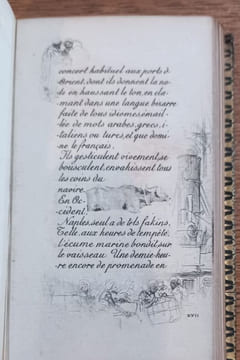 concert habituel aux ports d'
Orient, dont ils donnent la no-
te en haussant le ton, en cla-
mant dans une langue bizarre
faite de tous idiomes, émail-
lée de mots arabes, grecs, i-
taliens ou turcs, et que domi-
ne le français.
Ils gesticulent vivement, se
bousculent, envahissent tous
les coins du
navire.
En Oc-
cident,
Naples, seul a de tels fakins,
Telle, aux heures de tempête,
l'écume marine bondit sur
le vaisseau. Une demie-heu-
re encore de promenade en
XVII